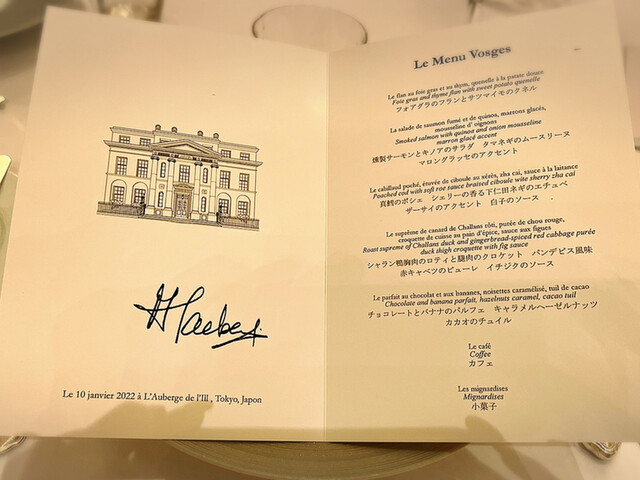 Le 10 janvier 2022 à L'Auberge de l'Ill , Tokyo, Japon
Le Menu Vosges
Le flan au foie gras et au thym, quenelle à la patate douce
Foie gras and thyme flan with sweet potato quenelle
フォアグラのフランとサツマイモのクネル
La salade de saumon fumé et de quinoa, marrons glacés,
mousseline d' oignons
Smoked salmon with quinoa and onion mousseline
marron glacé accent
燻製サーモンとキノアのサラダ タマネギのムースリーヌ
マロングラッセのアクセント
Le cabillaud poché, étuvée de ciboule au xérès, zha cai, sauce à la laitance
Poached cod with soft roe sauce braised ciboule wite sherry zha cai
真鱈のポシェ シェリーの香る下仁田ネギのエチュベ
ザーサイのアクセント 白子のソース
Le suprême de canard de Challans rôti, purée de chou rouge,
croquette de cuisse au pain d'épice, sauce aux figues
Roast supreme of Challans duck and gingerbread-spiced red cabbage purée
duck thigh croquette with fig sauce
シャラン鴨胸肉のロティと腿肉のクロケット パンデピス風味
赤キャベツのピューレ イチジクのソース
Le parfait au chocolat et aux bananes, noisettes caramélisé, tuil de cacao
Chocolate and banana parfait, hazelnuts caramel, cacao tuil
チョコレートとバナナのパルフェ キャラメルヘーゼルナッツ
カカオのチュイル
Le café
Coffee
カフェ
Les mignardises
Mignardises
小菓子